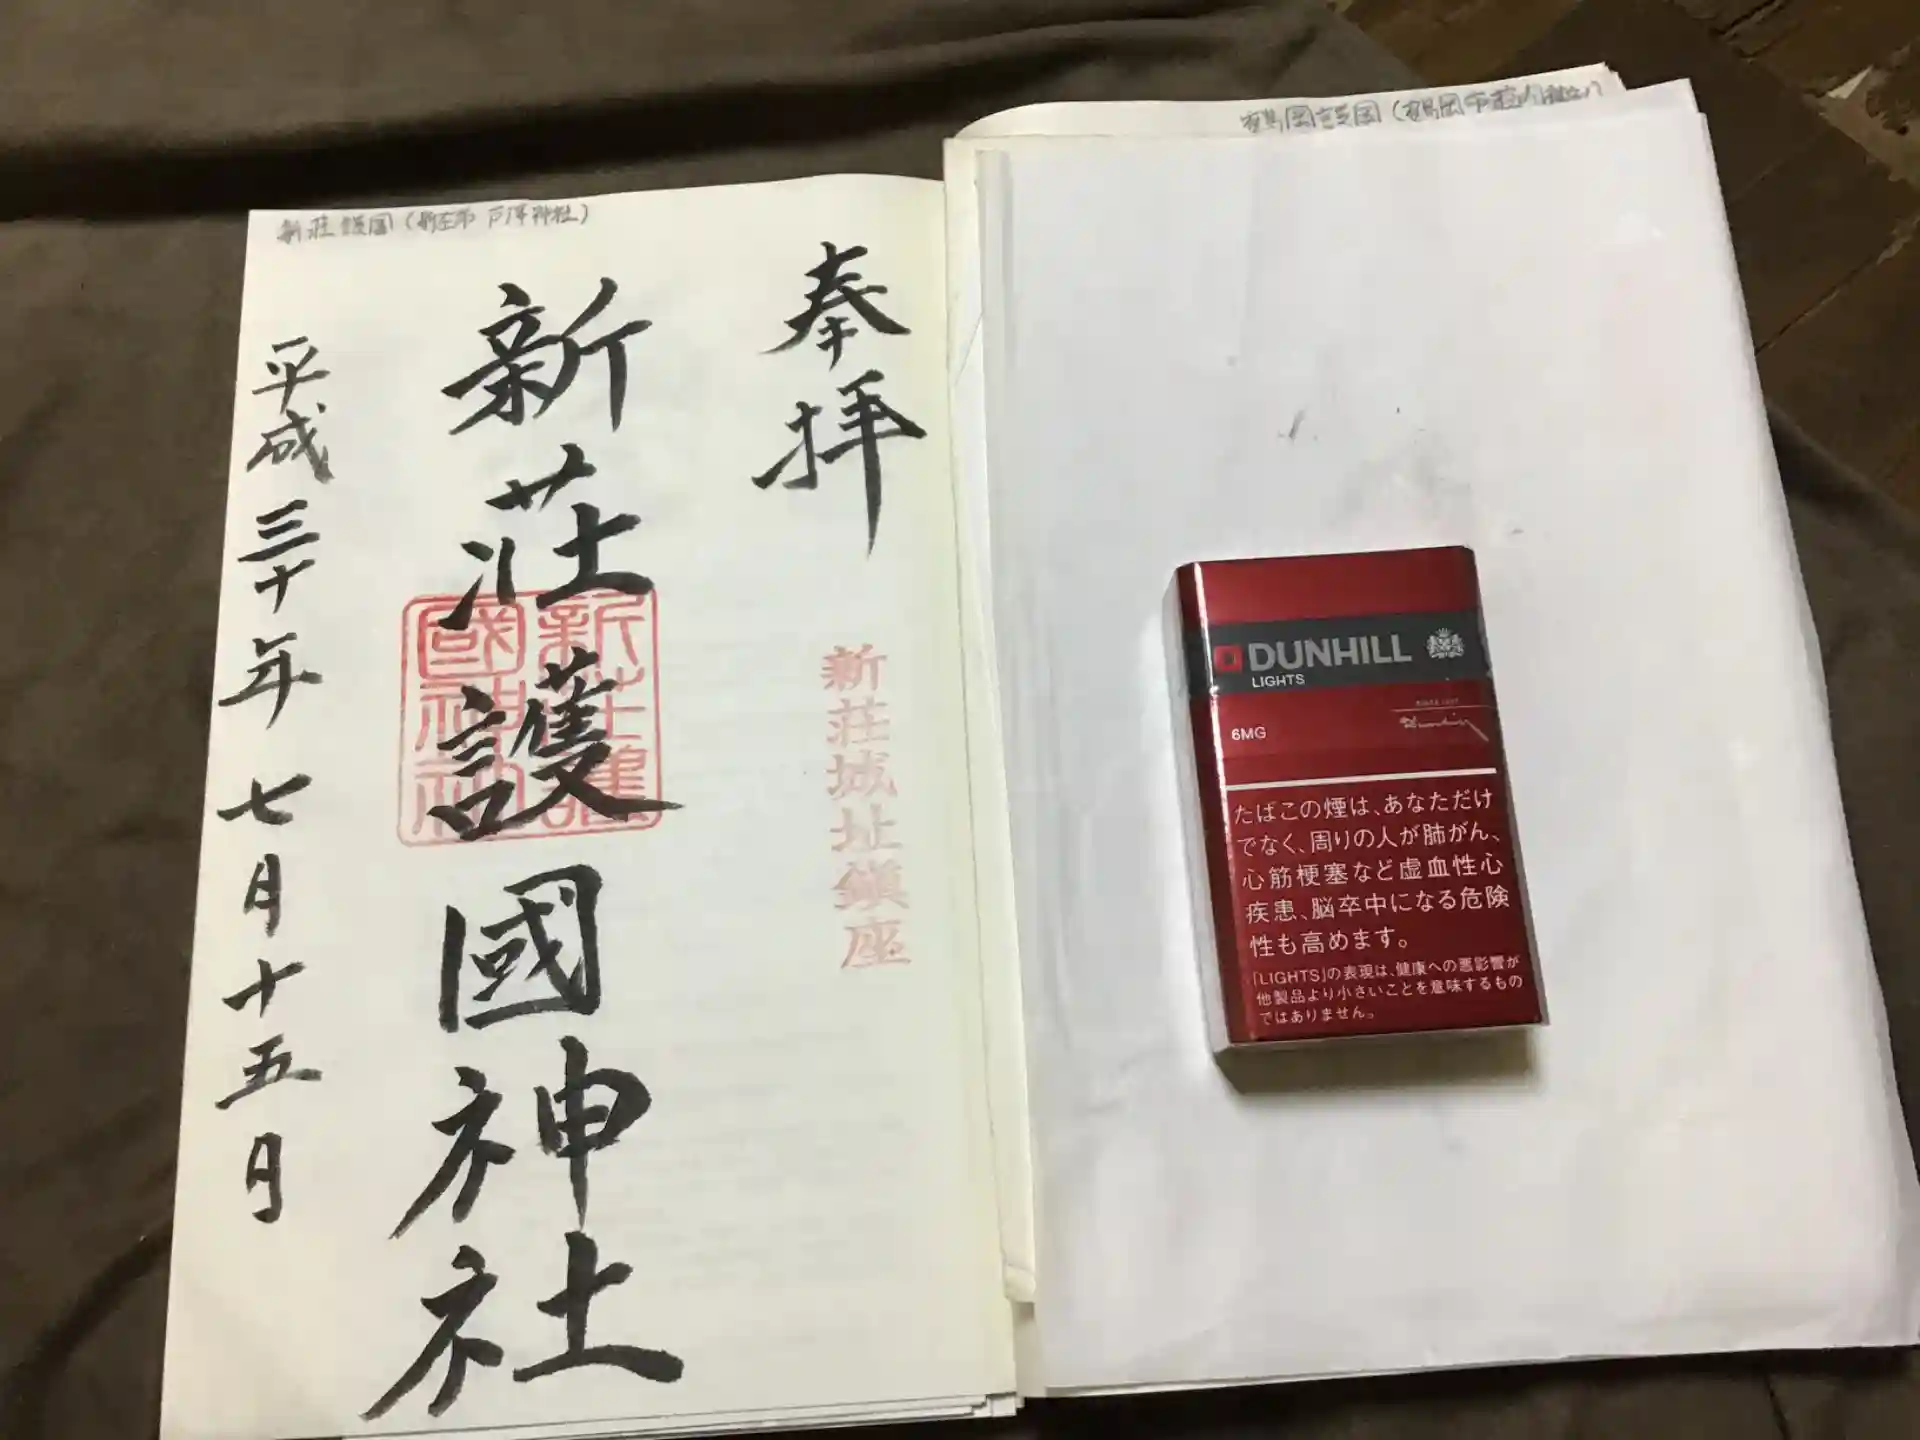 新荘護国(新庄市 戸澤神社)
奉拝
新荘城址鎮座
新荘護國神社
新荘護
國神社
平成三十年七月十五日
DUNHILL
LIGHTS
6MG
たばこの煙は、あなただけ
でなく、周りの人が肺がん、
心筋梗塞など虚血性心
疾患、脳卒中になる危険
性も高めます。
「LIGHTS」の表現は、健康への悪影響が
他製品より小さいことを意味するもの
ではありません。